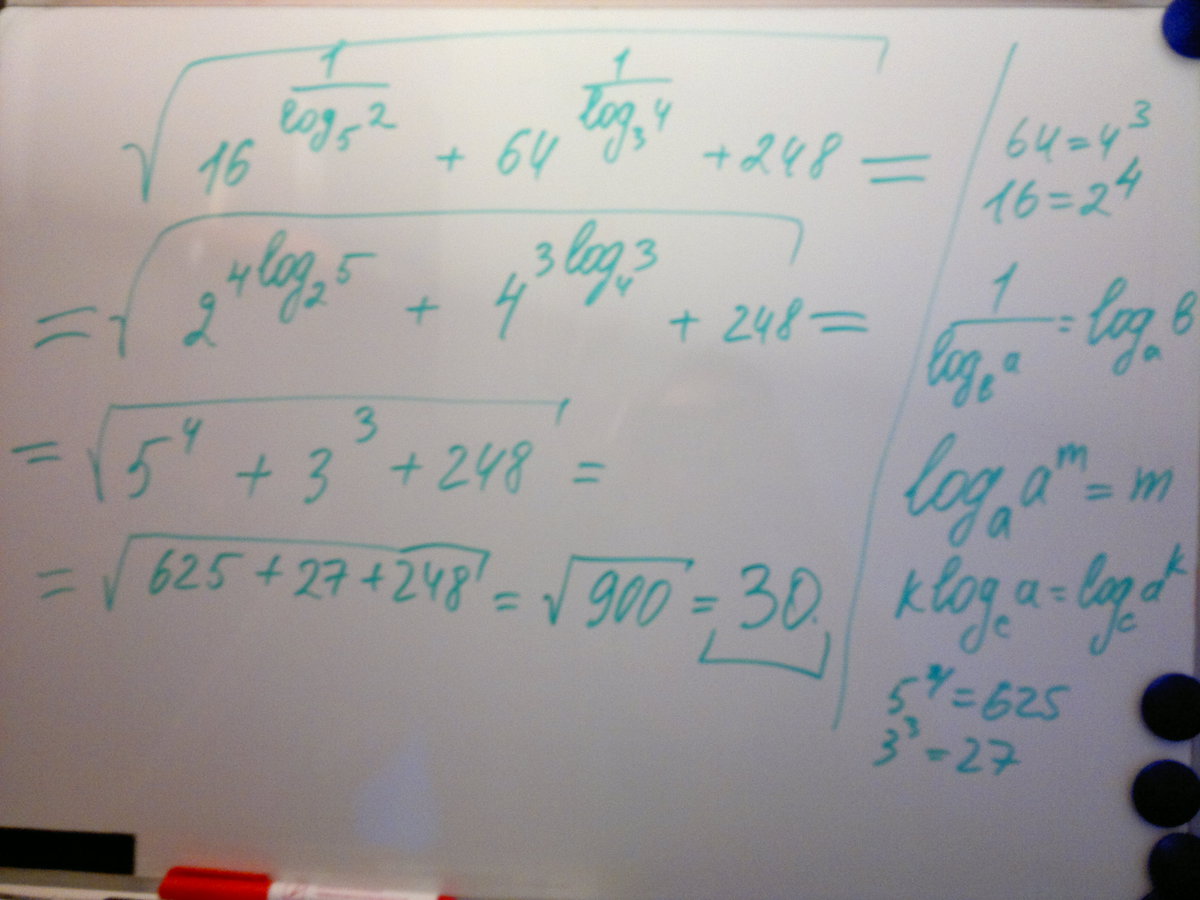 √(16^(1/log₅2) + 64^(1/log₃4) + 248) =
= √(2^(4log₂5) + 4^(3log₄3) + 248) =
= √(5⁴ + 3³ + 248) =
= √(625 + 27 + 248) = √900 = 30.
64 = 4³
16 = 2⁴
1/log_b a = log_a b
log_a a^m = m
k log_c a = log_c a^k
5⁴ = 625
3³ = 27